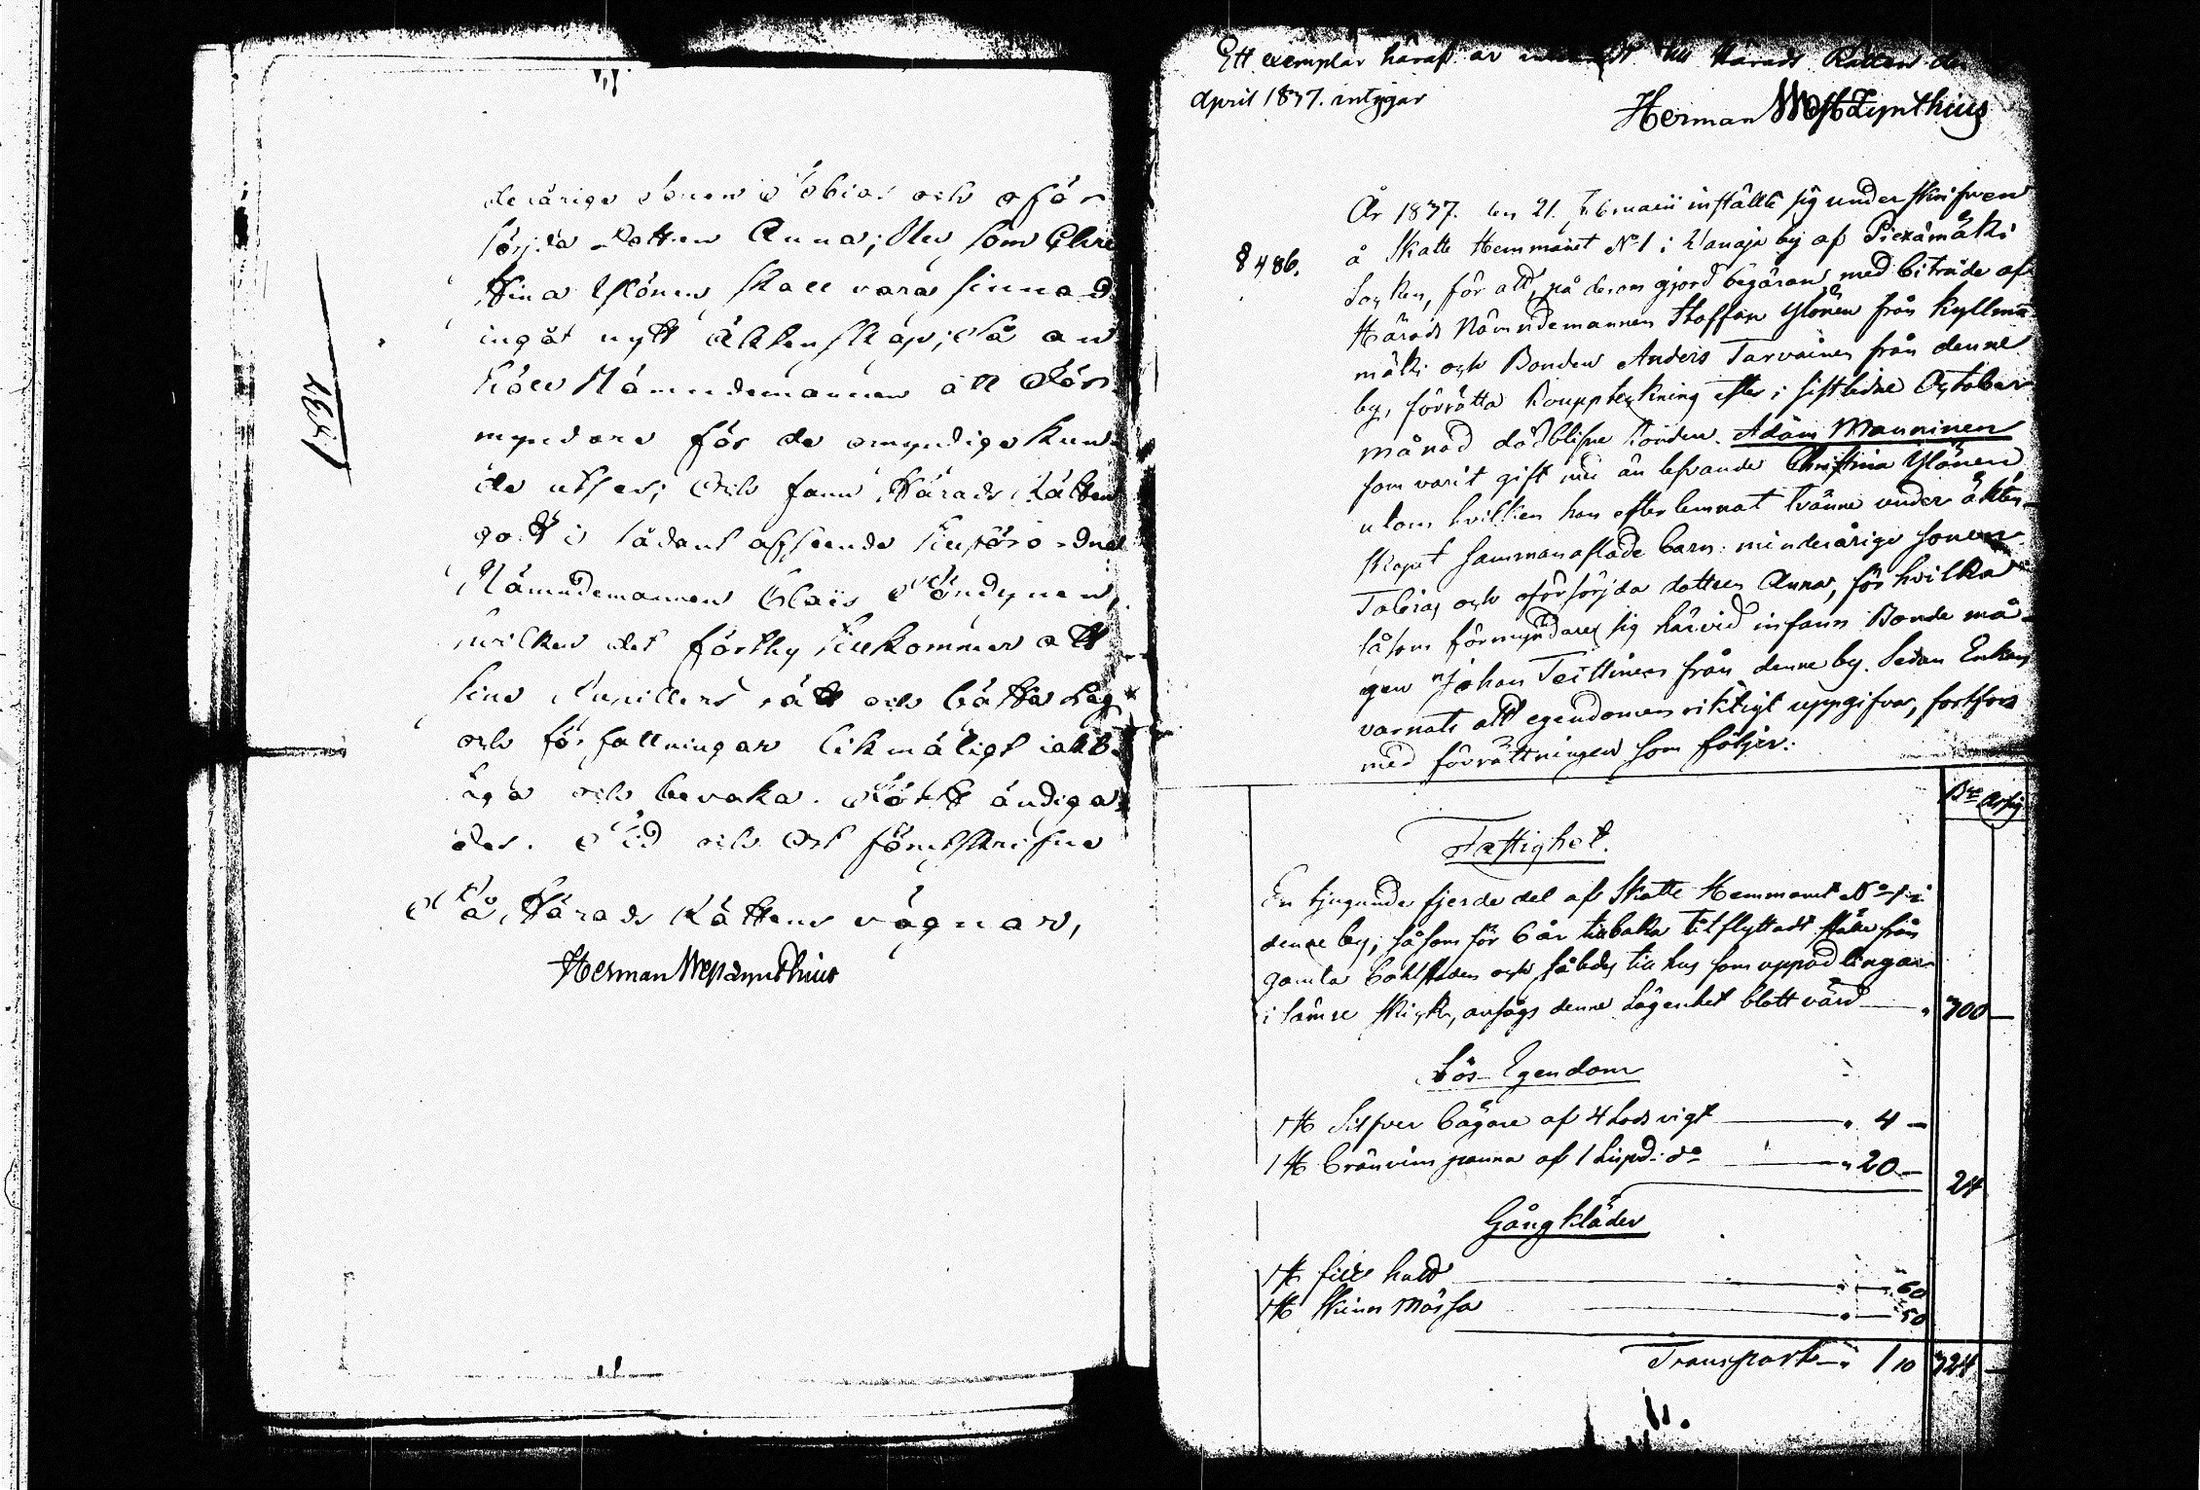 deåriga sonen Tobias och oför
sörjda Dottren Anna; Men som Chri
stina Ylönen skall vara sinnad
ingåt nytt Äktenskap; Så an
höll Nämndemannen att För
myndare för de omyndiga kun
de utses; Och fann Härads Rätten
godt i sådant afseende tillförordna
Nämndemannen Claës Pöndynen,
hvilken det förthy tillkommer att
sine Pupillers rätt och bästa Lag
och författningar likmätigt iakt
taga och bevaka. Som ändiga
des. Tid och Ort förutskrifne
På Härads Rättens vägnar,
Herman Westzynthius
Ett exemplar häraf är till Härads Rätten den
April 1837. intygar
Herman Westzynthius
§ 486.
År 1837. den 21. Februarii inställte sig underskrifven
å Skatte Hemmanet No 1 i Vanaja by af Piexämäki
Socken, för att, på derom gjord begäran, med biträde af
Härads Nämndemannen Staffan Ylönen från Kyllmä
mäki och Bonden Anders Tarvainen från denne
by, förrätta Bouppteckning efter i sistledne October
månad dödblifne Bonden Adam Manninen
som varit gift med än lefvande Christina Ylönen
utom hvilken han efterlemnat tvänne under äkten-
skapet sammanaflade barn: minderårige sonen
Tobias och oförsörjda dottren Anna, för hvilka
såsom förmyndare sig härvid infann Bonde må-
gen Johan Teittinen från denne by. Sedan Enkan
varnats att egendomen riktigt uppgifva, fortfors
med förrättningen som följer:
Fastighet.
En tjugunde fjerde del af Skatte Hemmanet No 1 i
denne by; såsom för 6 år tillbaka tilflyttadt ställe från
gamla bohlstaden och således till hus som uppodlingar
i sämre skick, ansågs denne Lägenhet blott värd " 700 —
Lös-Egendom
1 st. Silfver bägare af 4 Lods vigt " 4 —
1 st. Bränvins panna af 1 Lispd: do " 20 — 24
Gångkläder
1 st. filt hatt " — 60
1 st. Skinn Mössa " — 50
Transport " 1 10 724 —